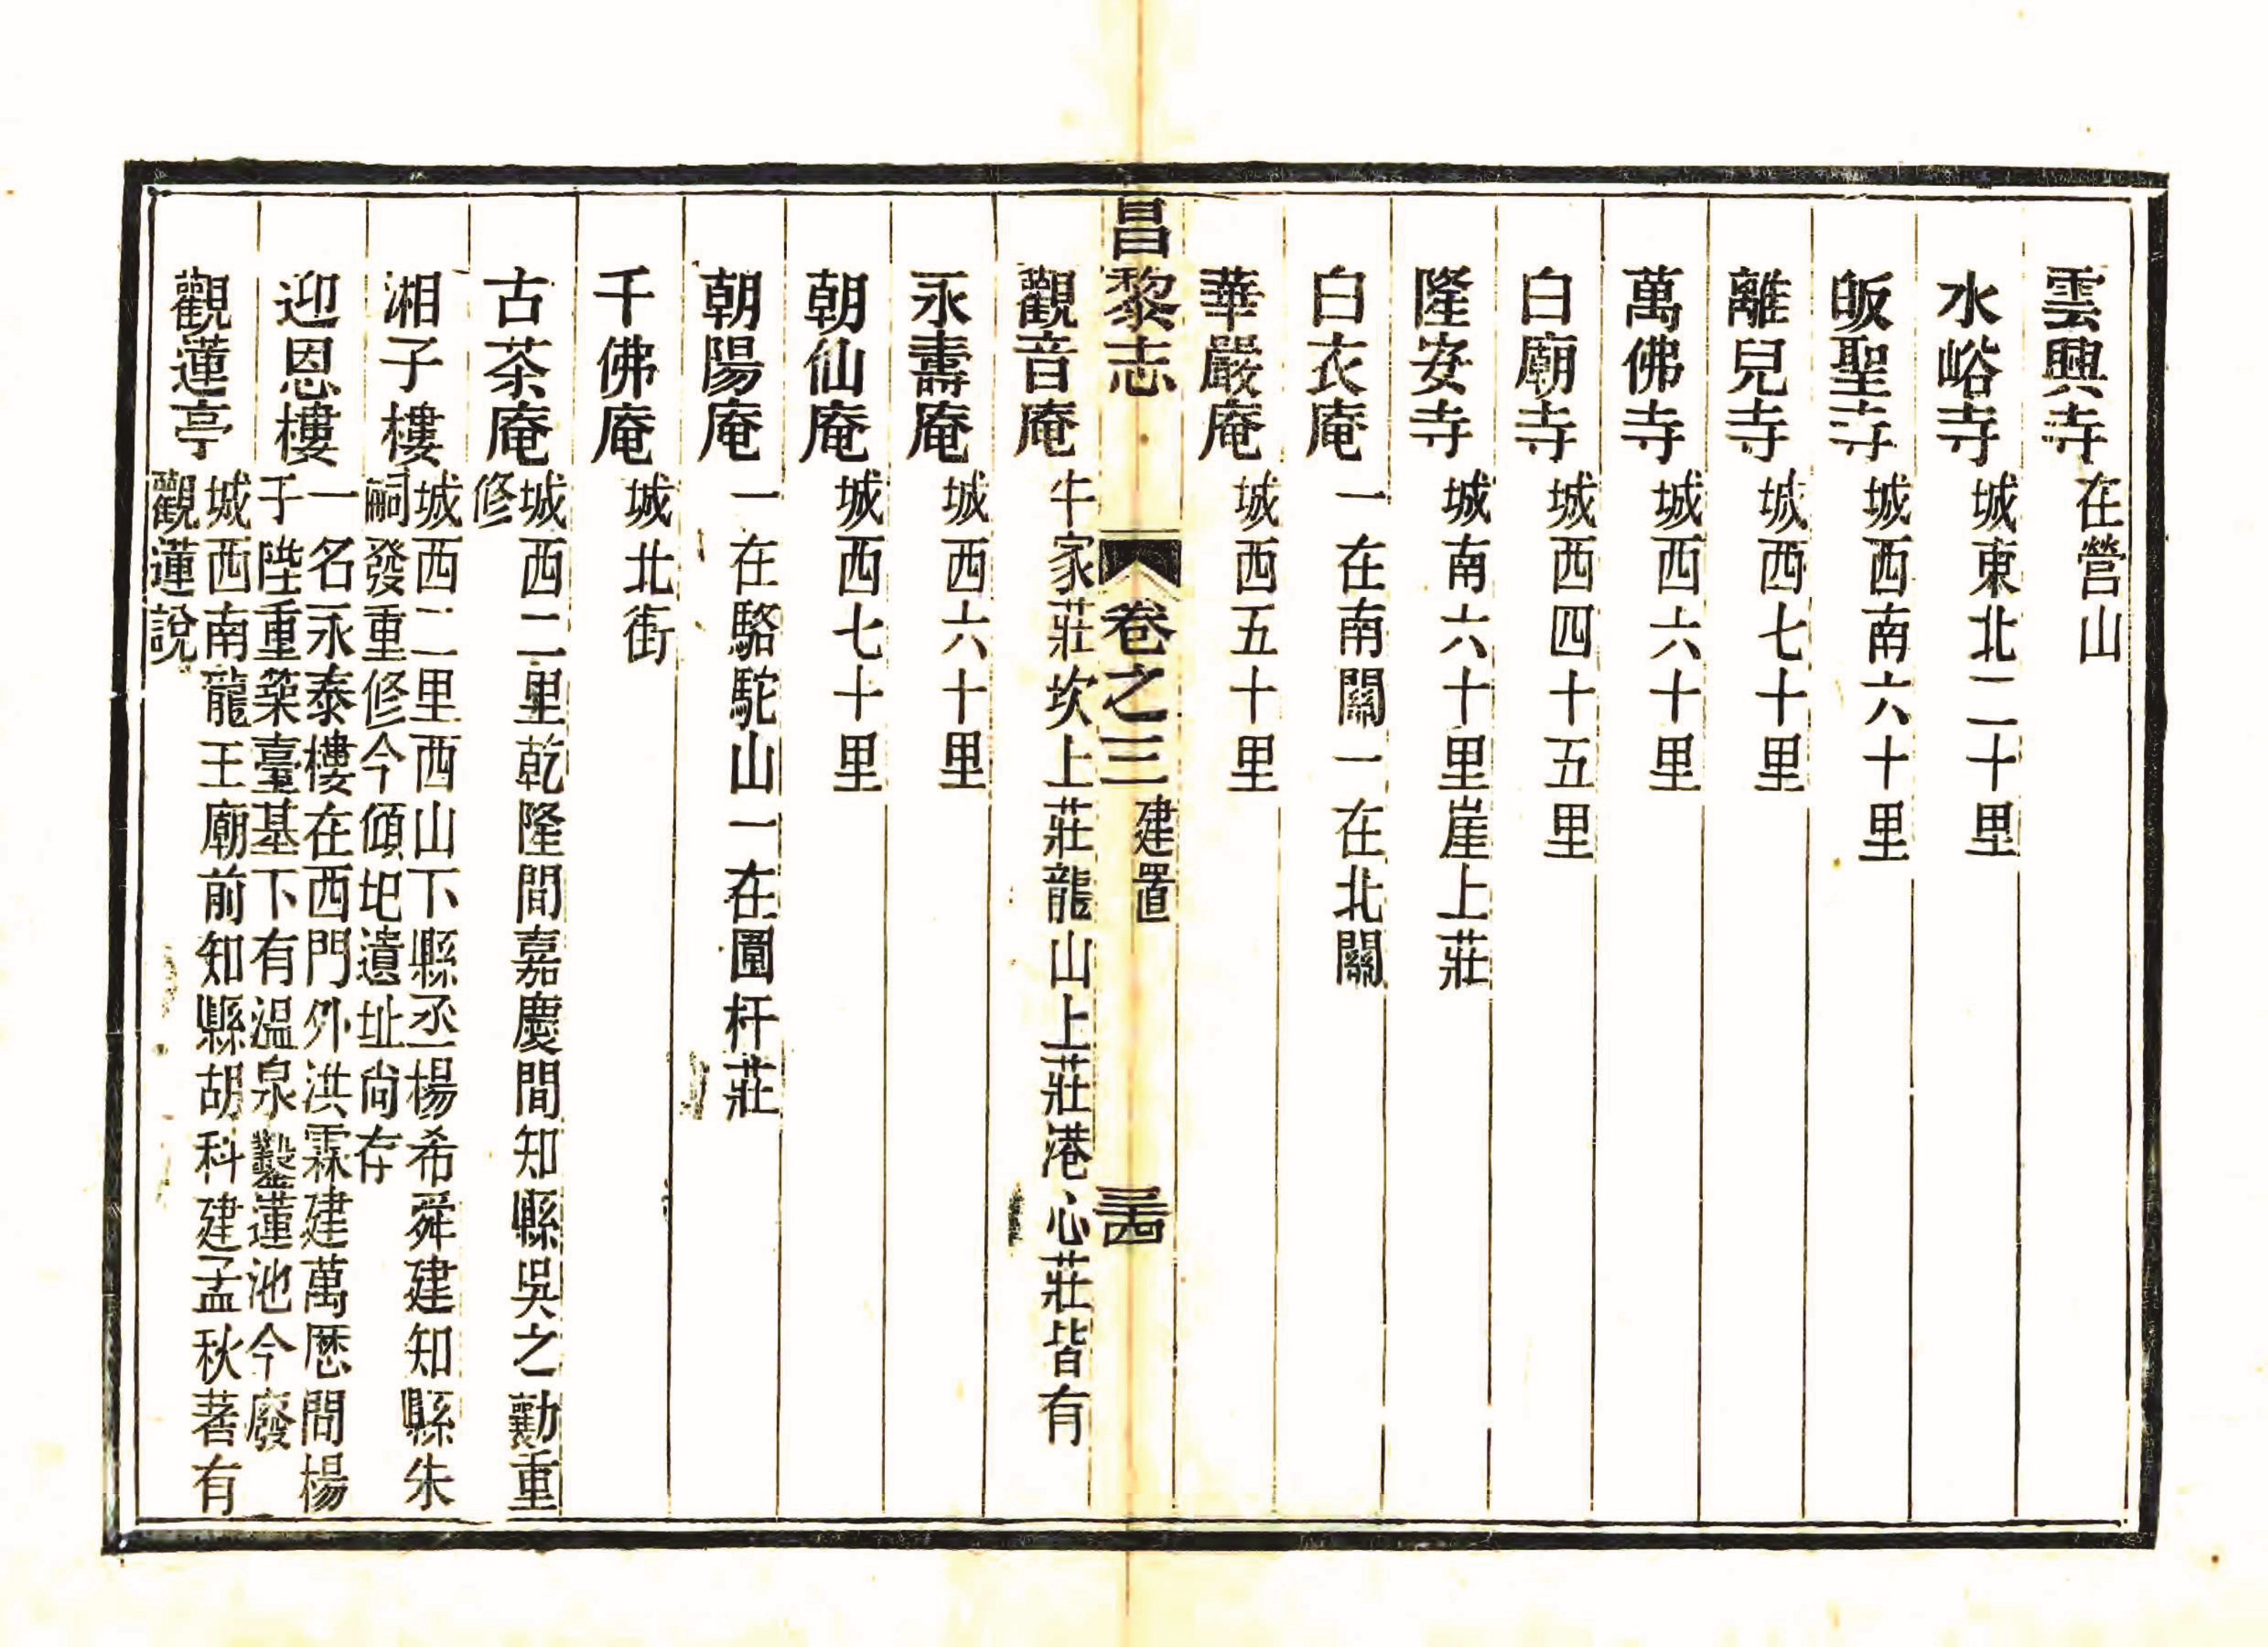 雲興寺 在營山
水峪寺 城東北二十里
皈聖寺 城西南六十里
離兒寺 城西七十里
萬佛寺 城西六十里
白廟寺 城西四十五里
隆安寺 城南六十里崖上莊
白衣庵 一在南關一在北關
華嚴庵 城西五十里
昌黎志 卷之三 建置 三十四
觀音庵 牛家莊坎上莊龍山上莊港心莊皆有
永壽庵 城西六十里
朝仙庵 城西七十里
朝陽庵 一在駱駝山一在圍杆莊
千佛庵 城北街
古茶庵 城西二里乾隆間嘉慶間知縣吳之勷重
修
湘子樓 城西二里西山下縣丞楊希舜建知縣朱
嗣發重修今傾圯遺址尚存
迎恩樓 一名永泰樓在西門外洪霖建萬厯間楊
于陛重築臺基下有溫泉鑿蓮池今廢
觀蓮亭 城西南龍王廟前知縣胡科建孟秋著有
觀蓮說